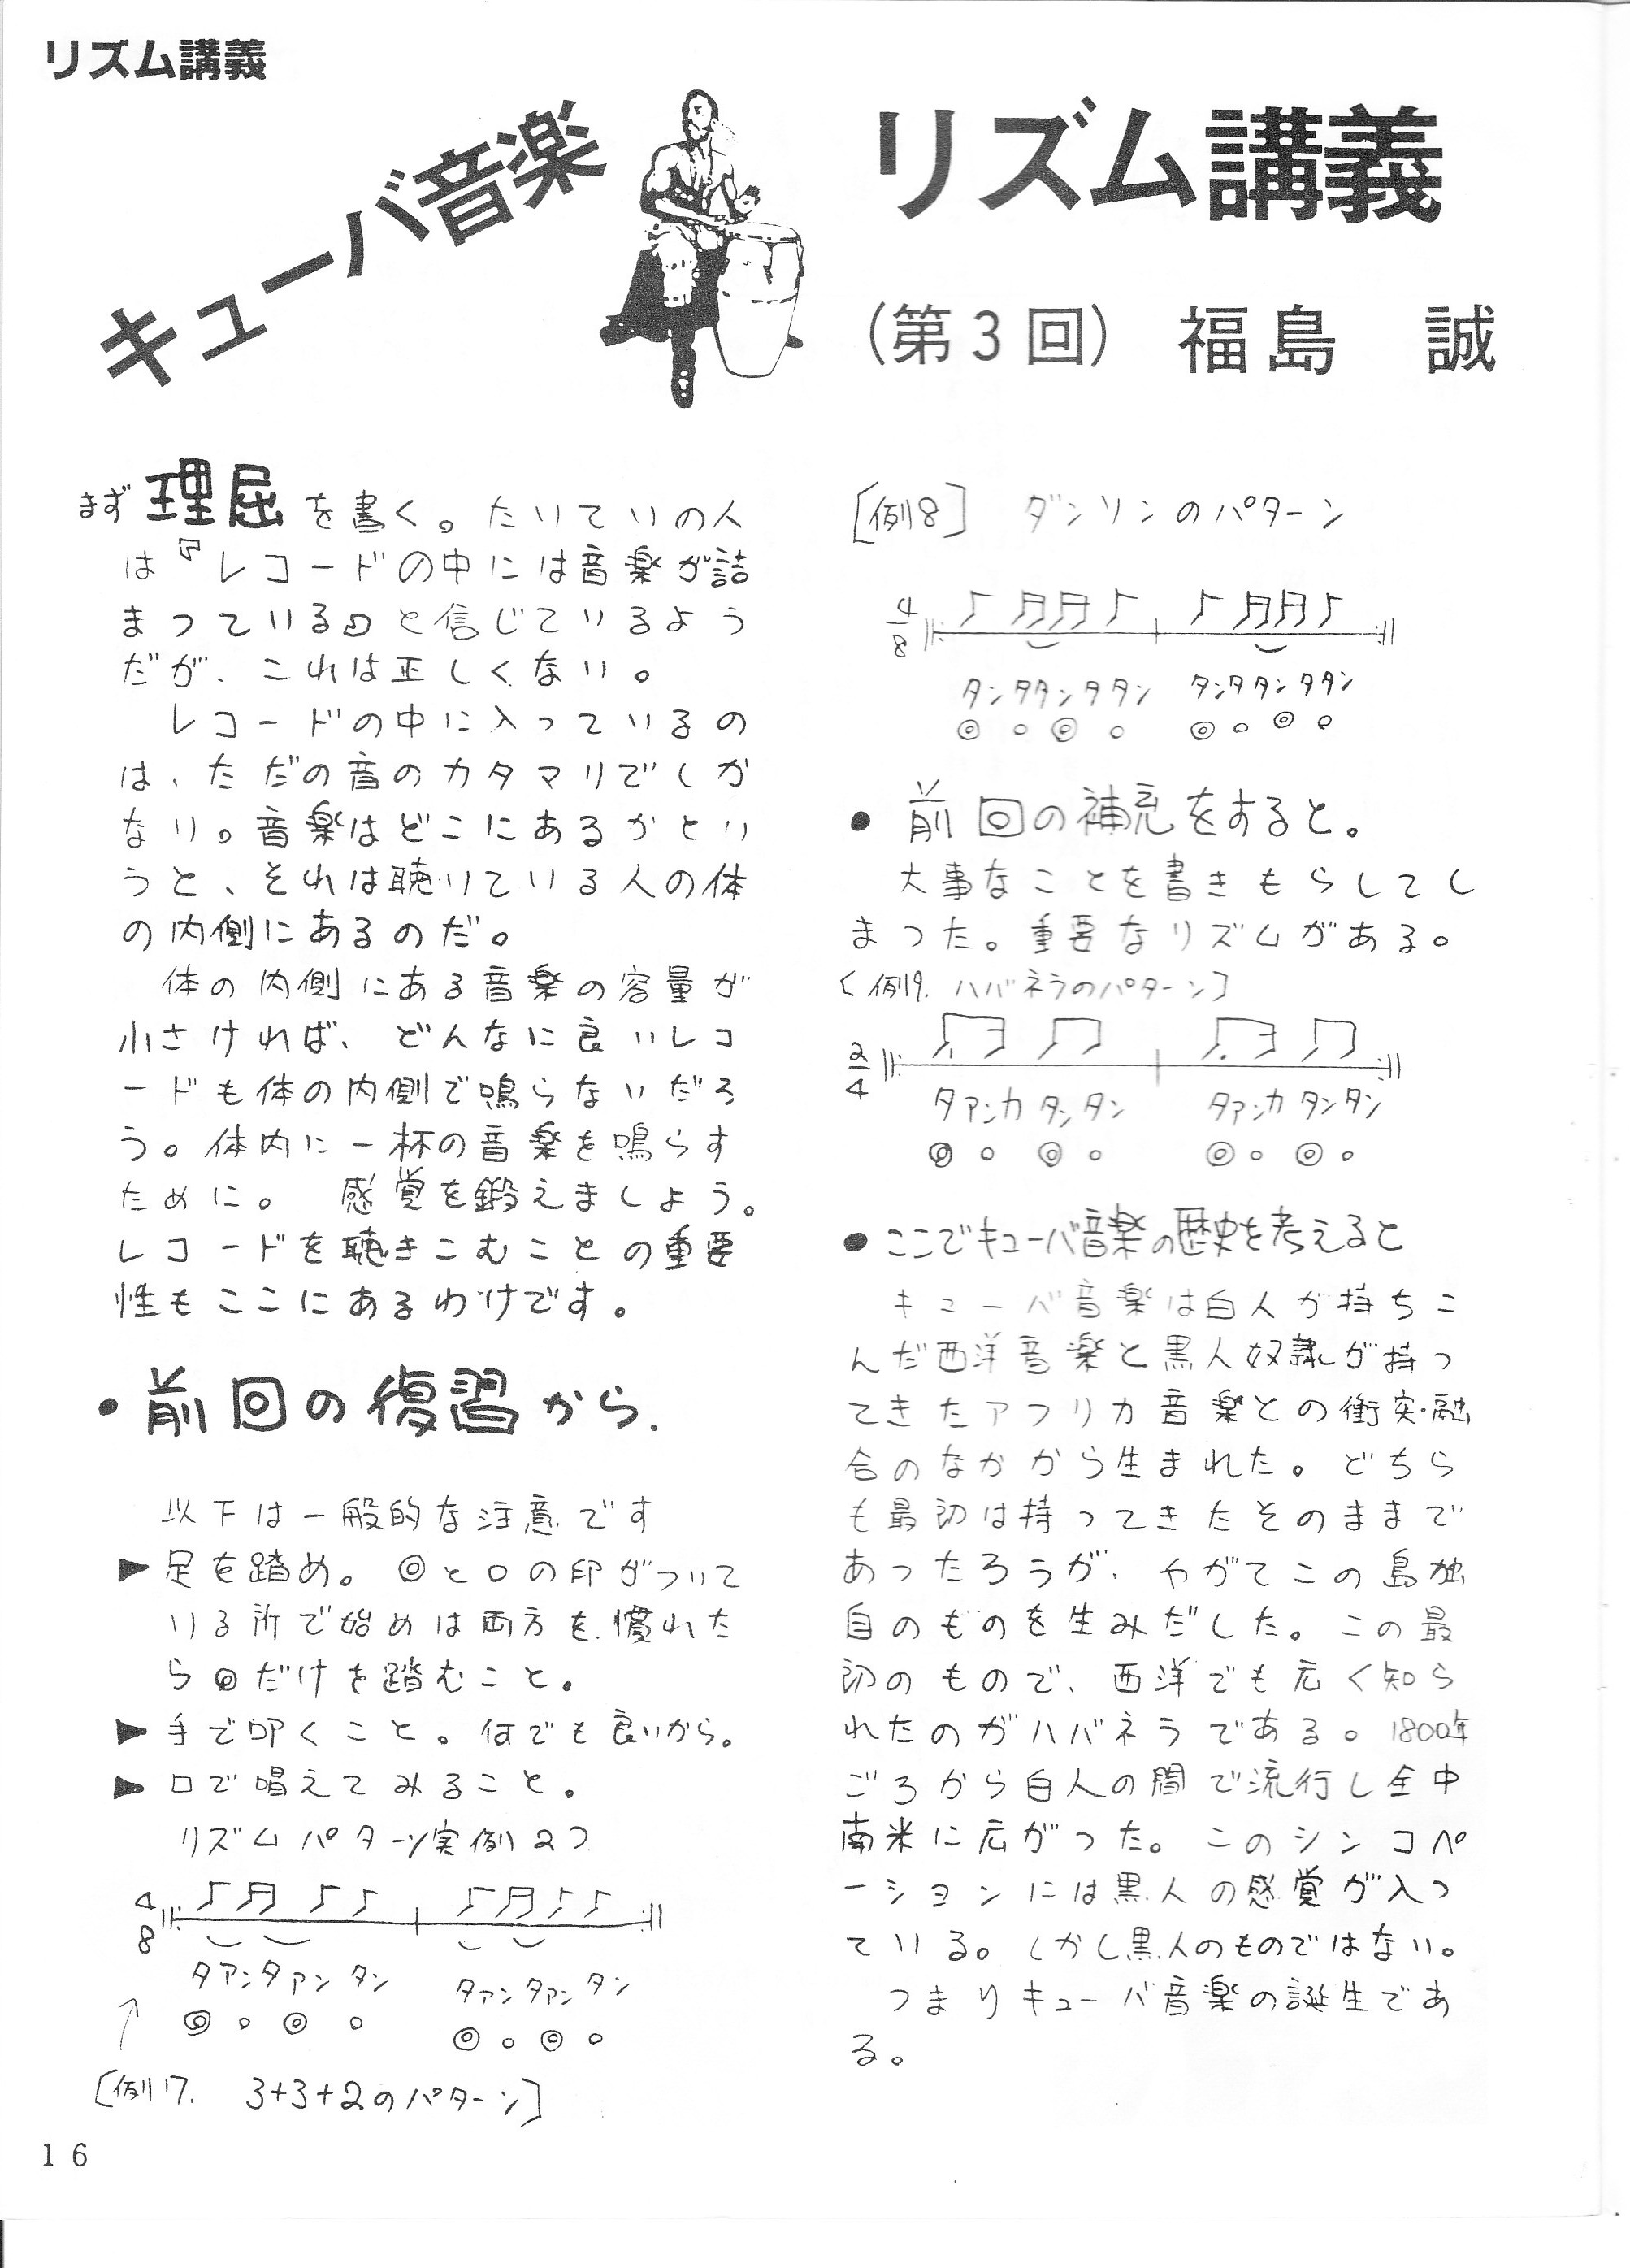 リズム講義
キューバ音楽
リズム講義
(第3回) 福島 誠
まず理屈を書く。たいていの人
は『レコードの中には音楽が詰
まっている』と信じているよう
だが、これは正しくない。
レコードの中に入っているの
は、ただの音のカタマリでしか
ない。音楽はどこにあるかとい
うと、それは聴いている人の体
の内側にあるのだ。
体の内側にある音楽の容量が
小さければ、どんなに良いレコ
ードも体の内側で鳴らないだろ
う。体内に一杯の音楽を鳴らす
ために。 感覚を鍛えましょう。
レコードを聴きこむことの重要
性もここにあるわけです。
・前回の復習から.
以下は一般的な注意です
▶足を踏め。◎と○の印がついて
いる所で始めは両方を、慣れた
ら◎だけを踏むこと。
▶手で叩くこと。何でも良いから。
▶口で唱えてみること。
リズムパターン実例2つ
4
8
タアンタアン タン タアンタアンタン
◎ ○ ◎ ○ ◎ ○ ◎ ○
[例17. 3+3+2のパターン]
16
[例18] ダンソンのパターン
4
8
タンタタンタタン タンタタンタタン
◎ ○ ◎ ○ ◎ ○ ◎ ○
●前回の補充をすると。
大事なことを書きもらしてし
まった。重要なリズムがある。
[例19. ハバネラのパターン]
2
4
タアンカ タンタン タアンカ タンタン
◎ ○ ◎ ○ ◎ ○ ◎ ○
●ここでキューバ音楽の歴史を考えると
キューバ音楽は白人が持ちこ
んだ西洋音楽と黒人奴隷が持っ
てきたアフリカ音楽との衝突・融
合のなかから生まれた。どちら
も最初は持ってきたそのままで
あったろうが、やがてこの島独
自のものを生みだした。この最
初のもので、西洋でも広く知ら
れたのがハバネラである。1800年
ごろから白人の間で流行し全中
南米に広がった。このシンコペ
ーションには黒人の感覚が入っ
ている。しかし黒人のものではない。
つまりキューバ音楽の誕生であ
る。